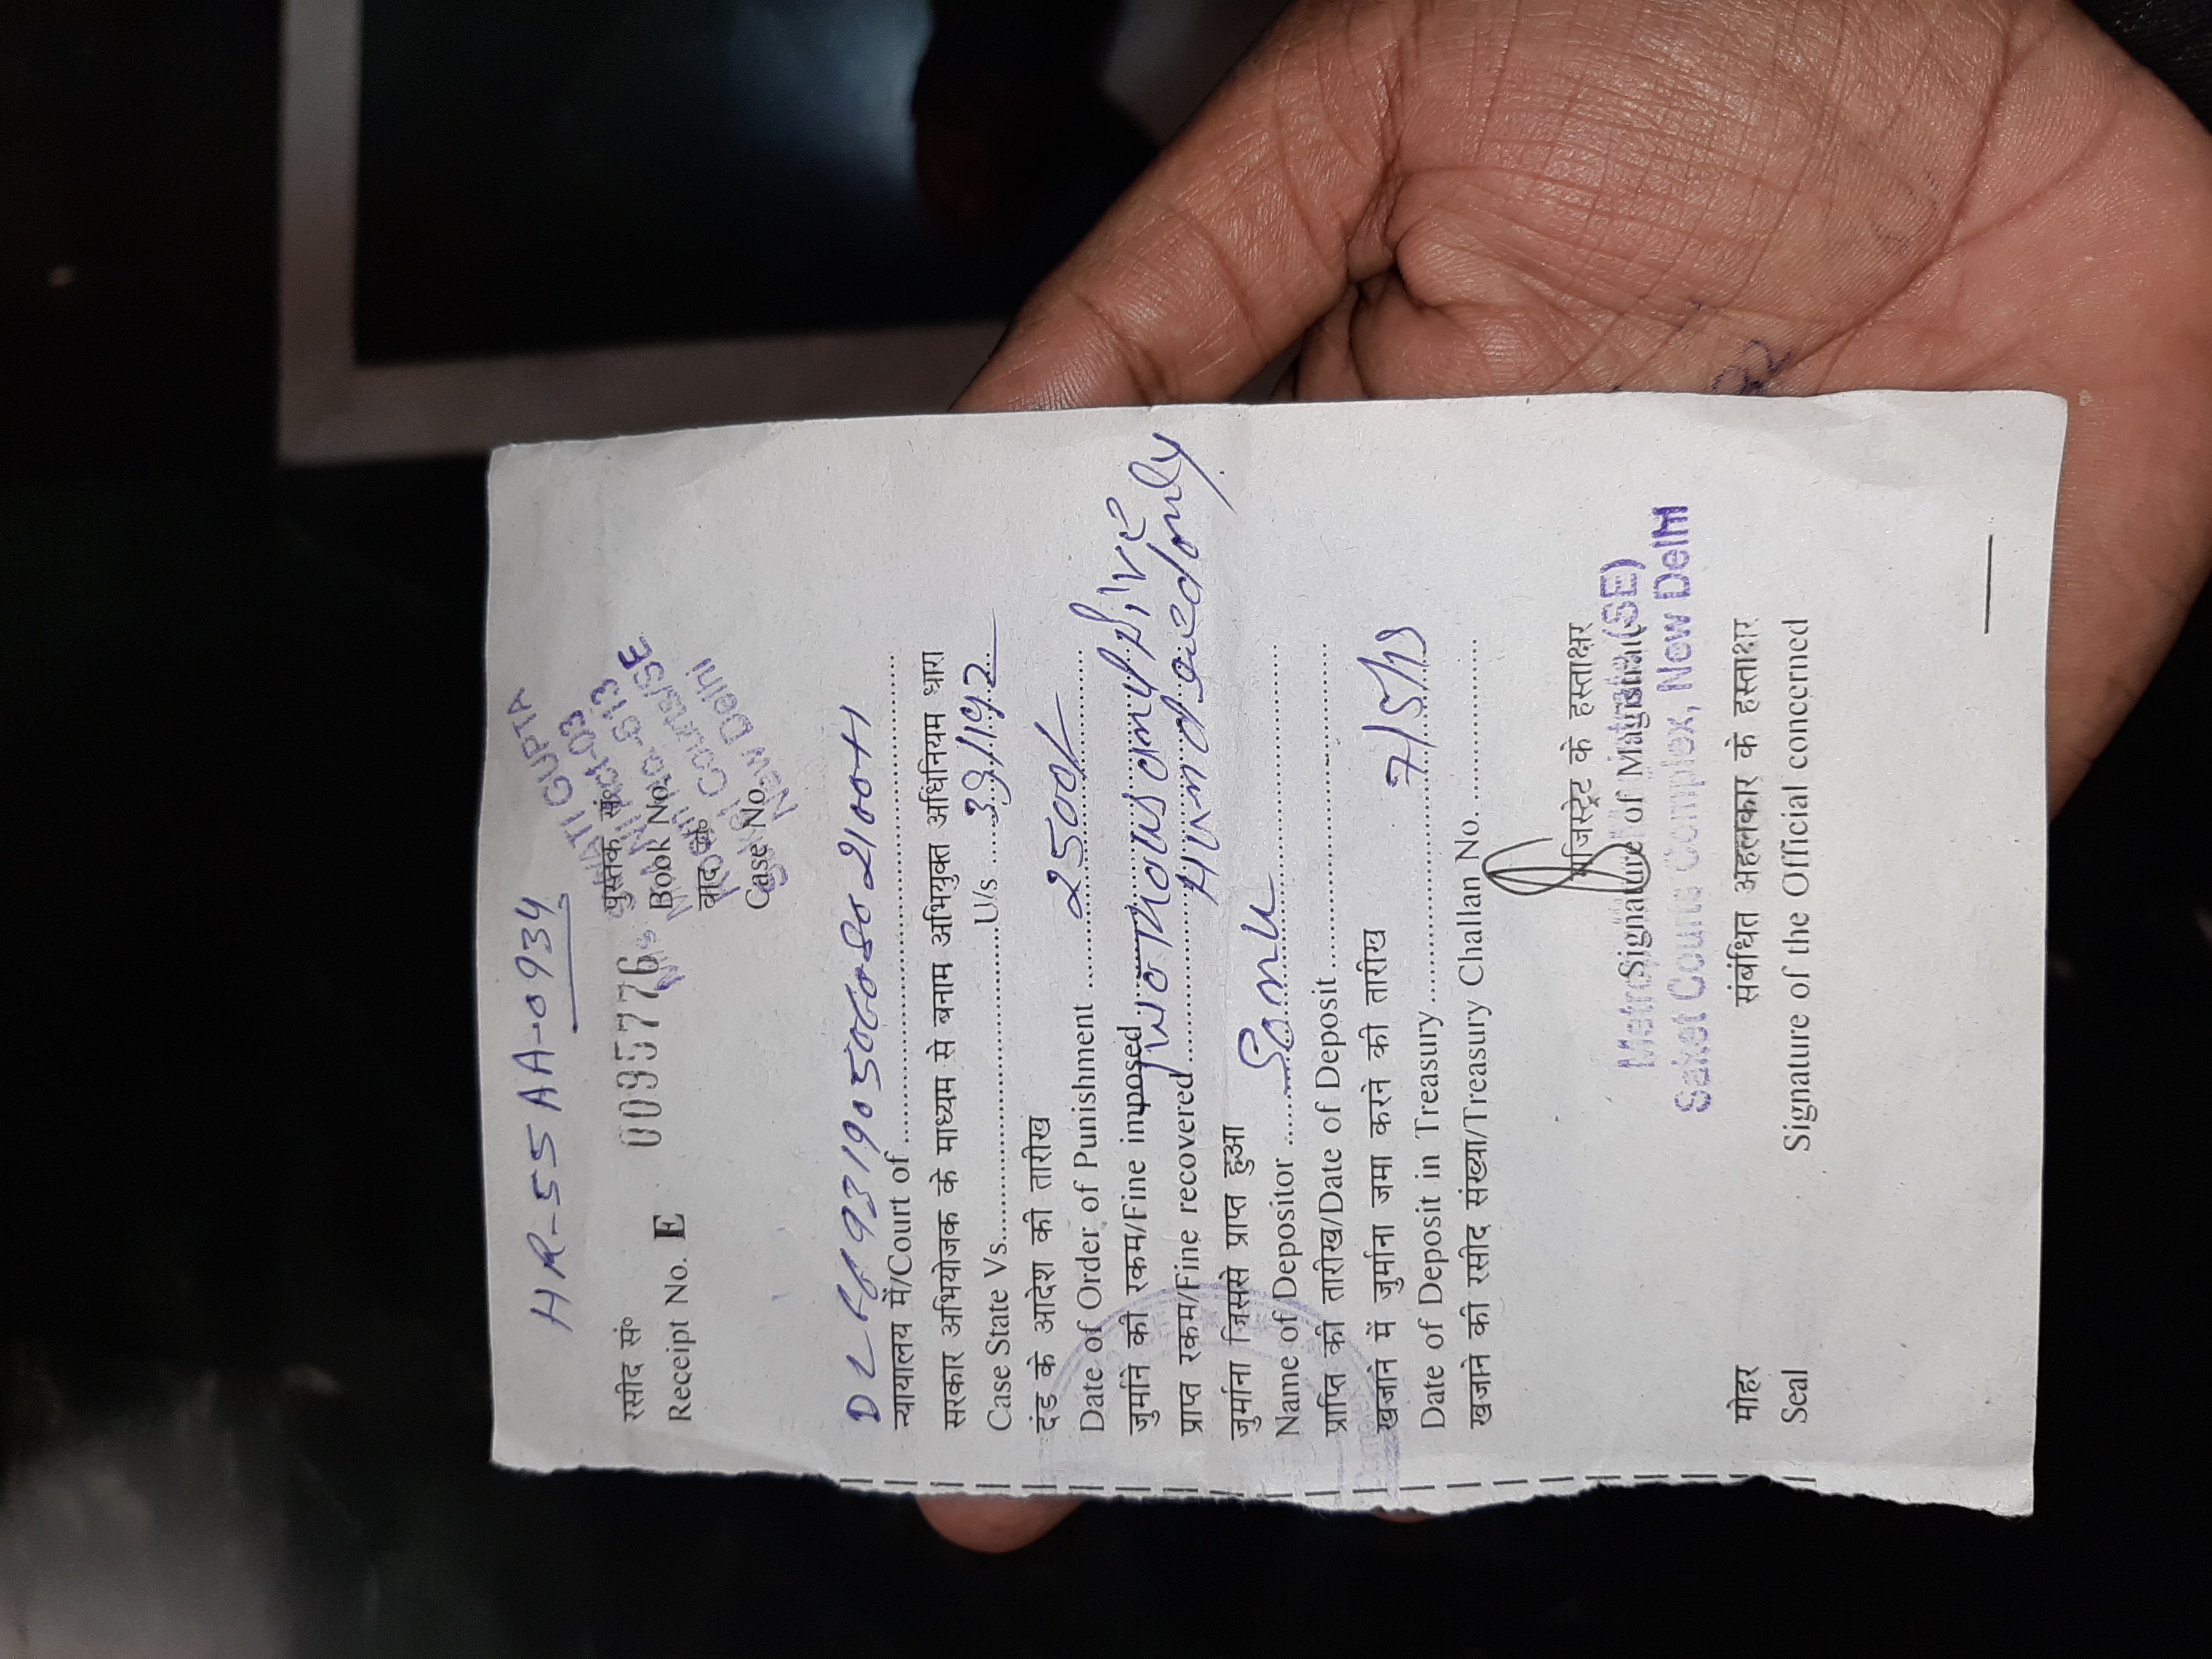 HR-55AA-0934
रसीद सं०
Receipt No. E 0095776
पुस्तक सं०
Book No.
वाद सं०
Case No.
GUPTA
New Delhi
न्यायालय में/Court of
सरकार अभियोजक के माध्यम से बनाम अभियुक्त अधिनियम धारा
Case State Vs. U/s 39/192
दंड के आदेश की तारीख
Date of Order of Punishment 2500/-
जुर्माने की रकम/Fine imposed Two Thousand Five
प्राप्त रकम/Fine recovered Hundred only
जुर्माना जिससे प्राप्त हुआ
Name of Depositor Sonu
प्राप्ति की तारीख/Date of Deposit
खजाने में जुर्माना जमा करने की तारीख
Date of Deposit in Treasury 7/5/19
खजाने की रसीद संख्या/Treasury Challan No.
मजिस्ट्रेट के हस्ताक्षर
Signature of Magistrate
Saket Courts Complex, New Delhi
संबंधित अहलकार के हस्ताक्षर
Signature of the Official concerned
मोहर
Seal